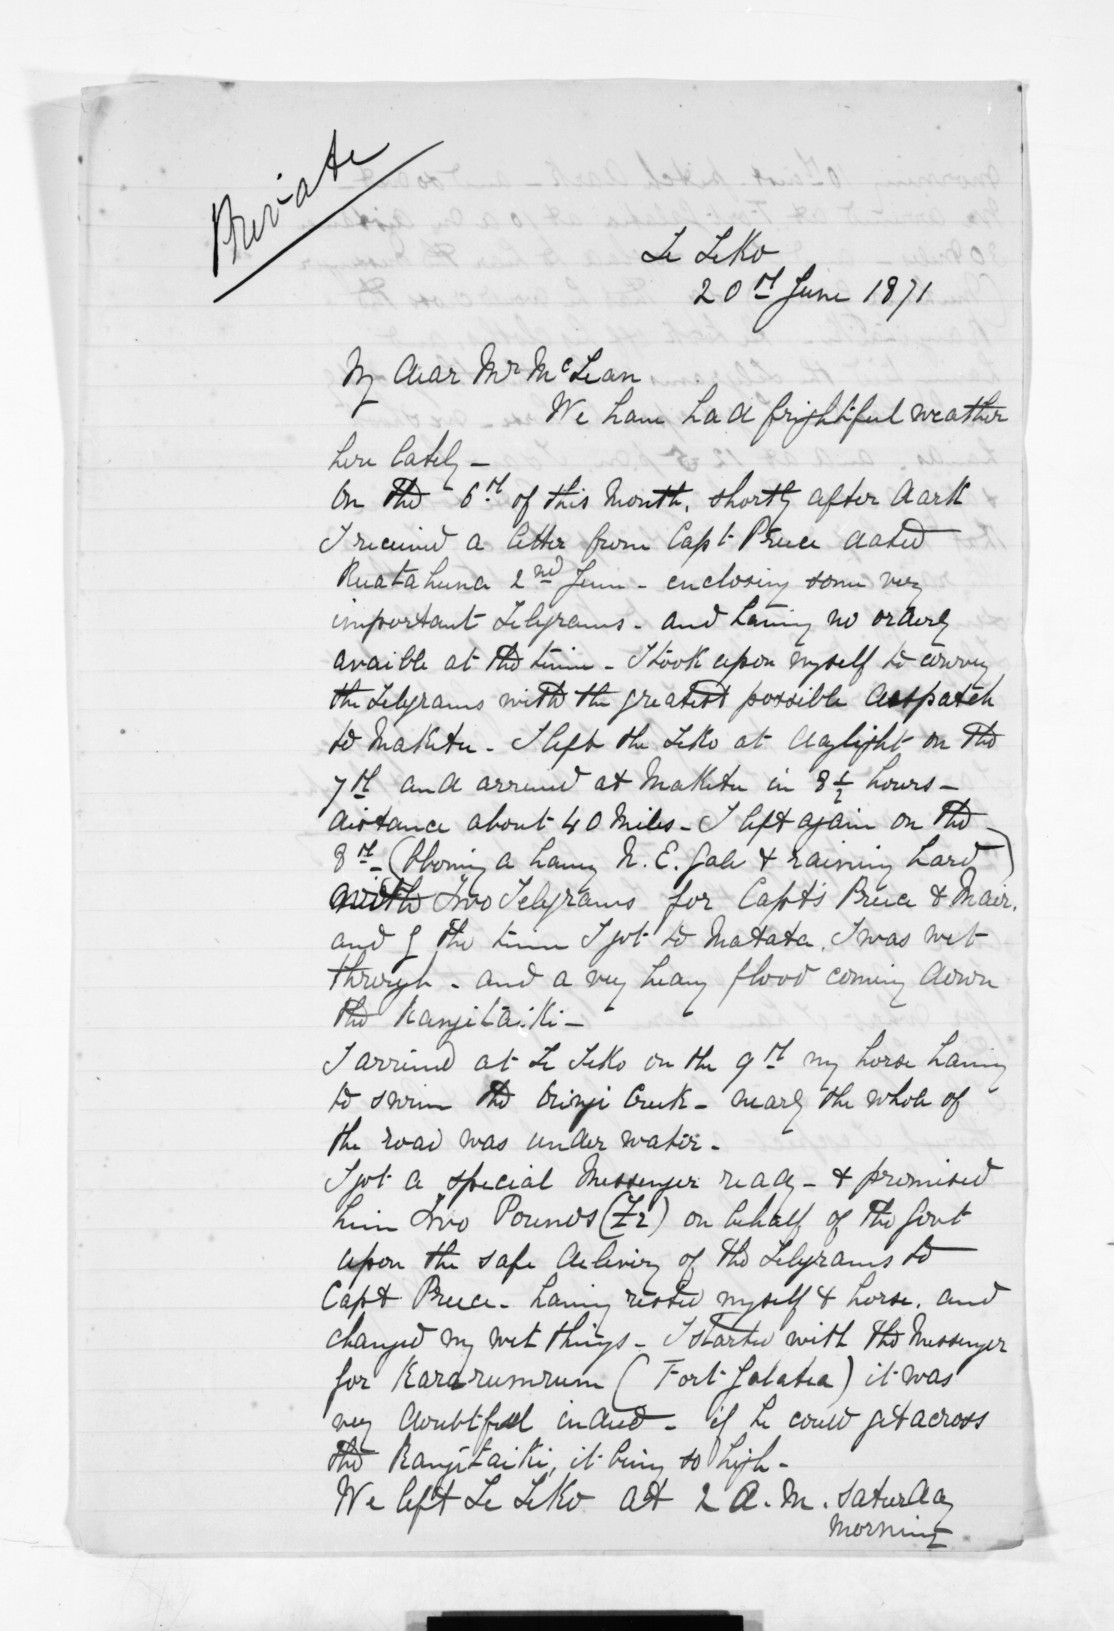 Private
Te Teko
20th June 1871
My dear Mr McLean
We have had frightful weather
here lately -
On the 6th of this month, shortly after dark
I received a letter from Capt Preece dated
Ruatahuna 2nd June - enclosing some very
important Telegrams - and having no orderly
avaible at the time - I took upon myself to convey
the Telegrams with the greatest possible despatch
to Maketu - I left the Teko at daylight on the
7th and arrived at Maketu in 8½ hours -
distance about 40 miles - I left again on the
8th - (blowing a heavy N. E. Gale & raining hard)
with Two Telegrams for Capts Preece & Mair.
and by the time I got to Matata, I was wet
through - and a very heavy flood coming down
the Rangitaiki -
I arrived at Te Teko on the 9th my horse having
to swim the Orini Creek - nearly the whole of
the road was under water -
I got a special Messenger ready - & promised
him Two Pounds (£2) on behalf of the Govt
upon the safe delivery of the Telegrams to
Capt Preece - having rested myself & horse, and
changed my wet things - I started with the Messenger
for Kararumrum (Fort Galatea) it was
very doubtful indeed - if he could get across
the Rangitaiki, it being so high -
We left Te Teko at 2 A.M. Saturday
morning